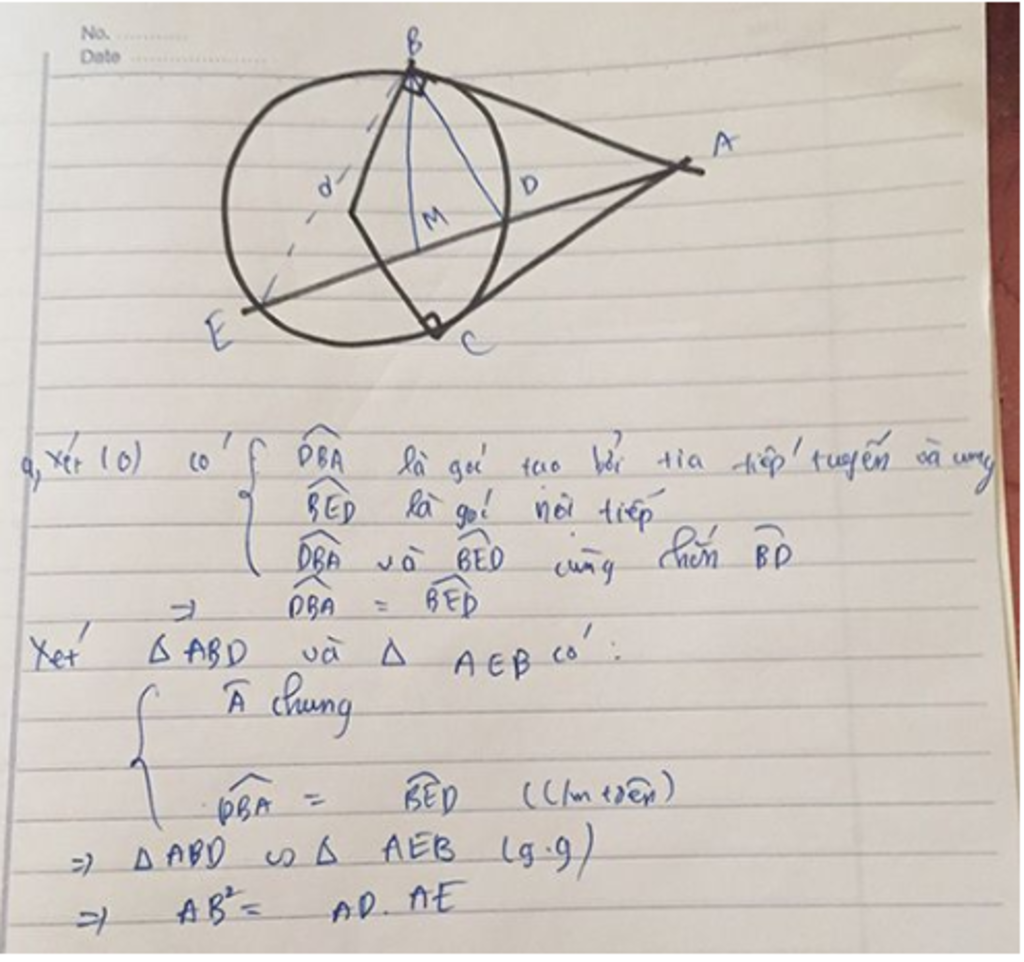 No. ............
Date ....................
B
A
d
D
M
E
C
a, Xét (O) có { DBA là goí tạo bởi tia tiếp tuyến và ung
BED là goí nội tiếp
DBA và BED cùng chắn BD
=> DBA = BED
Xét Δ ABD và Δ AEB có :
A chung
DBA = BED (C/m trên)
=> Δ ABD ∽ Δ AEB (g.g)
=> AB² = AD. AE